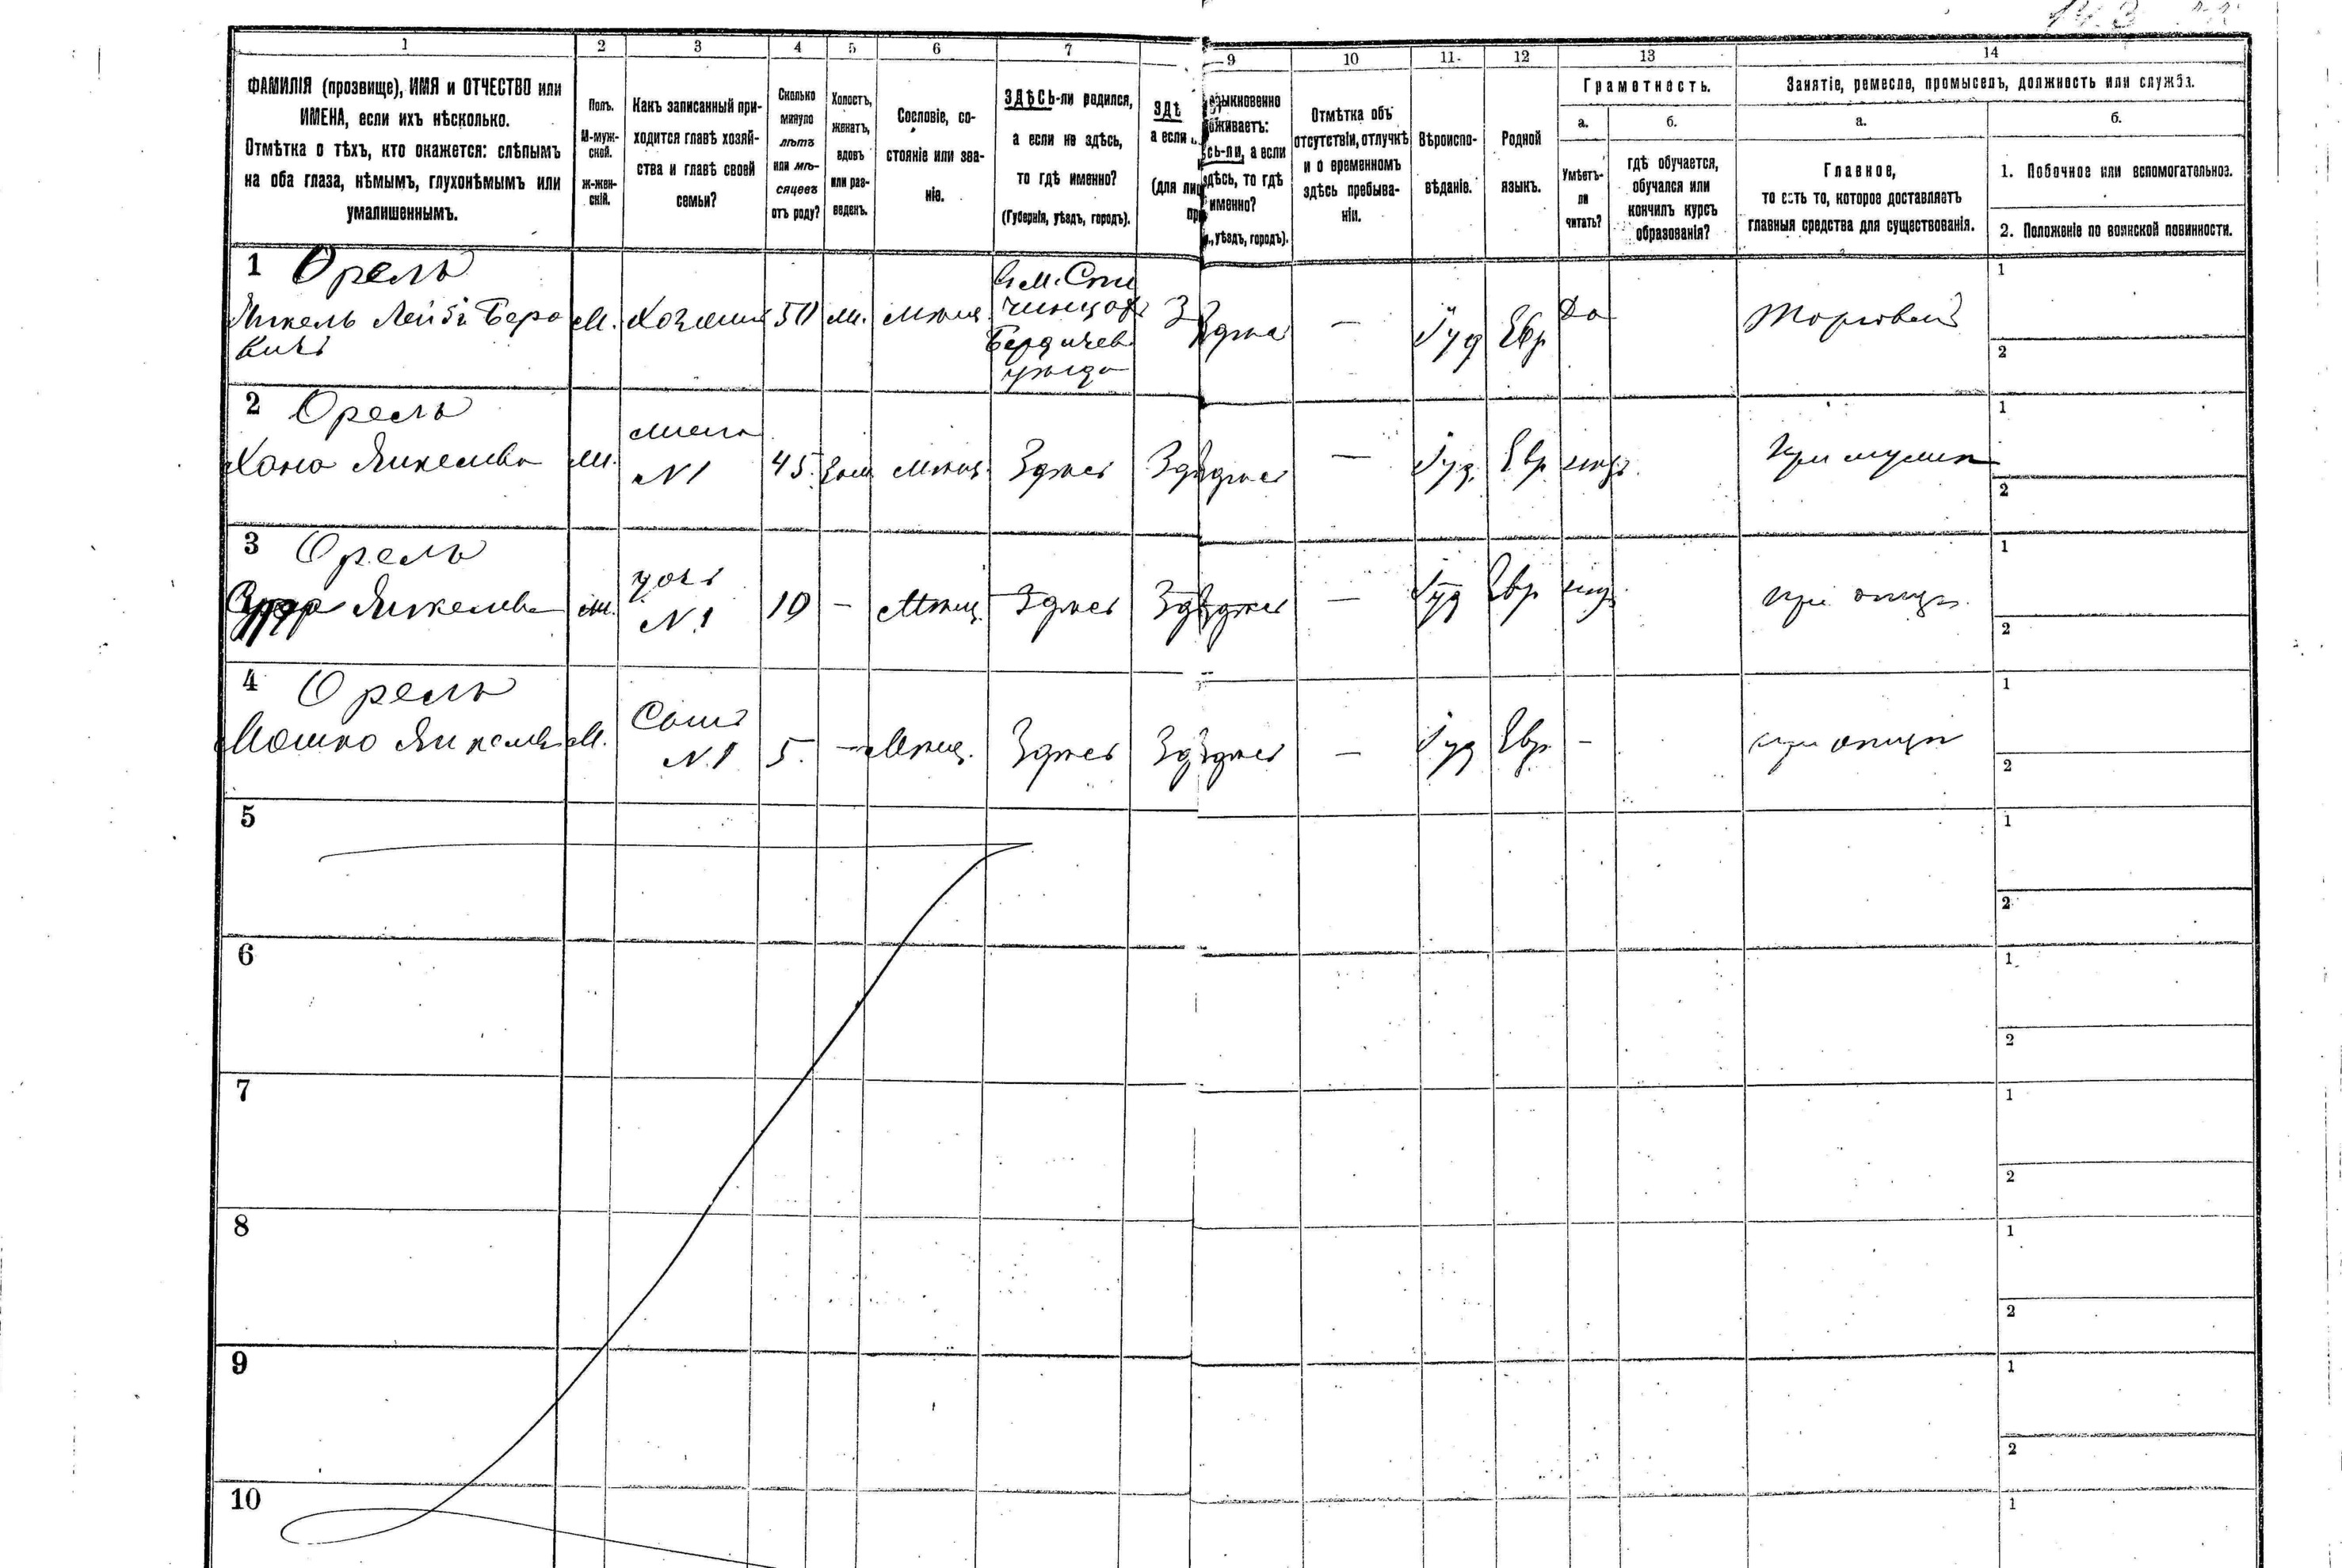 1 2 3 4 5 6 7 9 10 11. 12 13 14
ФАМИЛІЯ (прозвище), ИМЯ и ОТЧЕСТВО или
ИМЕНА, если ихъ нѣсколько.
Отмѣтка о тѣхъ, кто окажется: слѣпымъ
на оба глаза, нѣмымъ, глухонѣмымъ или
умалишеннымъ.
Полъ.
М-муж-
ской.
ж-жен-
скій.
Какъ записанный при-
ходится главѣ хозяй-
ства и главѣ своей
семьи?
Сколько
минуло
лѣтъ
или мѣ-
сяцевъ
отъ роду?
Холостъ,
женатъ,
вдовъ
или раз-
веденъ.
Сословіе, со-
стояніе или зва-
ніе.
ЗДѢСЬ-ли родился,
а если не здѣсь,
то гдѣ именно?
(Губернія, уѣздъ, городъ).
ЗДѢ
а если
(для лиц
пр
быкновенно
оживаетъ:
сь-ли, а если
здѣсь, то гдѣ
именно?
., уѣздъ, городъ).
Отмѣтка объ
отсутствіи, отлучкѣ
и о временномъ
здѣсь пребыва-
ніи.
Вѣроиспо-
вѣданіе.
Родной
языкъ.
Грамотность.
а.
Умѣетъ-
ли
читать?
б.
гдѣ обучается,
обучался или
кончилъ курсъ
образованія?
Занятіе, ремесло, промыселъ, должность или служба.
а.
Главное,
то есть то, которое доставляетъ
главныя средства для существованія.
б.
1. Побочное или вспомогательное.
2. Положеніе по воинской повинности.
1 Орель
Янкель Лейбъ Беро
вичъ
М. Хозяинъ 50 ж. Мѣщ.
Бердичев
уѣзда
З Здѣсь — Іуд Евр Да Торговецъ 1
2
2 Орель
Хана Янкелева ж. жена
№1 45. Зам Мѣщ. Здѣсь Зд Здѣсь — Іуд. Евр. при мужѣ 1
2
3 Орель
Янкелева ж. дочь
№1 10 — Мѣщ. Здѣсь Зд Здѣсь — Іуд Евр при отцѣ. 1
2
4 Орель
Мошко Янкелев М. Сынъ
№1 5. — Мѣщ. Здѣсь Зд Здѣсь — Іуд Евр. — при отцѣ 1
2
5 1
2
6 1
2
7 1
2
8 1
2
9 1
2
10 1